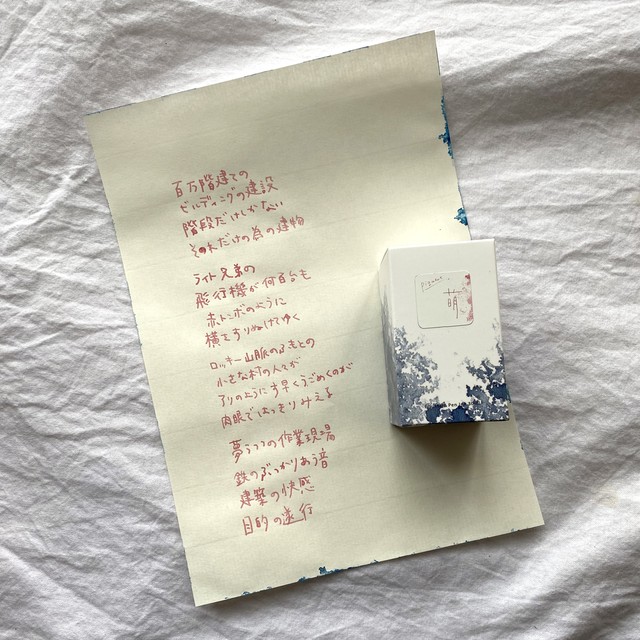 百万階建ての
ビルディングの建設
階段だけしかない
そのためだけの為の建物
ライト兄弟の
飛行機が何百台も
赤トンボのように
横をすりぬけてゆく
ロッキー山脈のふもとの
小さな村の人々が
アリのようにす早くうごめくのが
肉眼ではっきりみえる
夢うつつの作業現場
鉄のぶつかりあう音
建築の快感
目的の遂行
萌